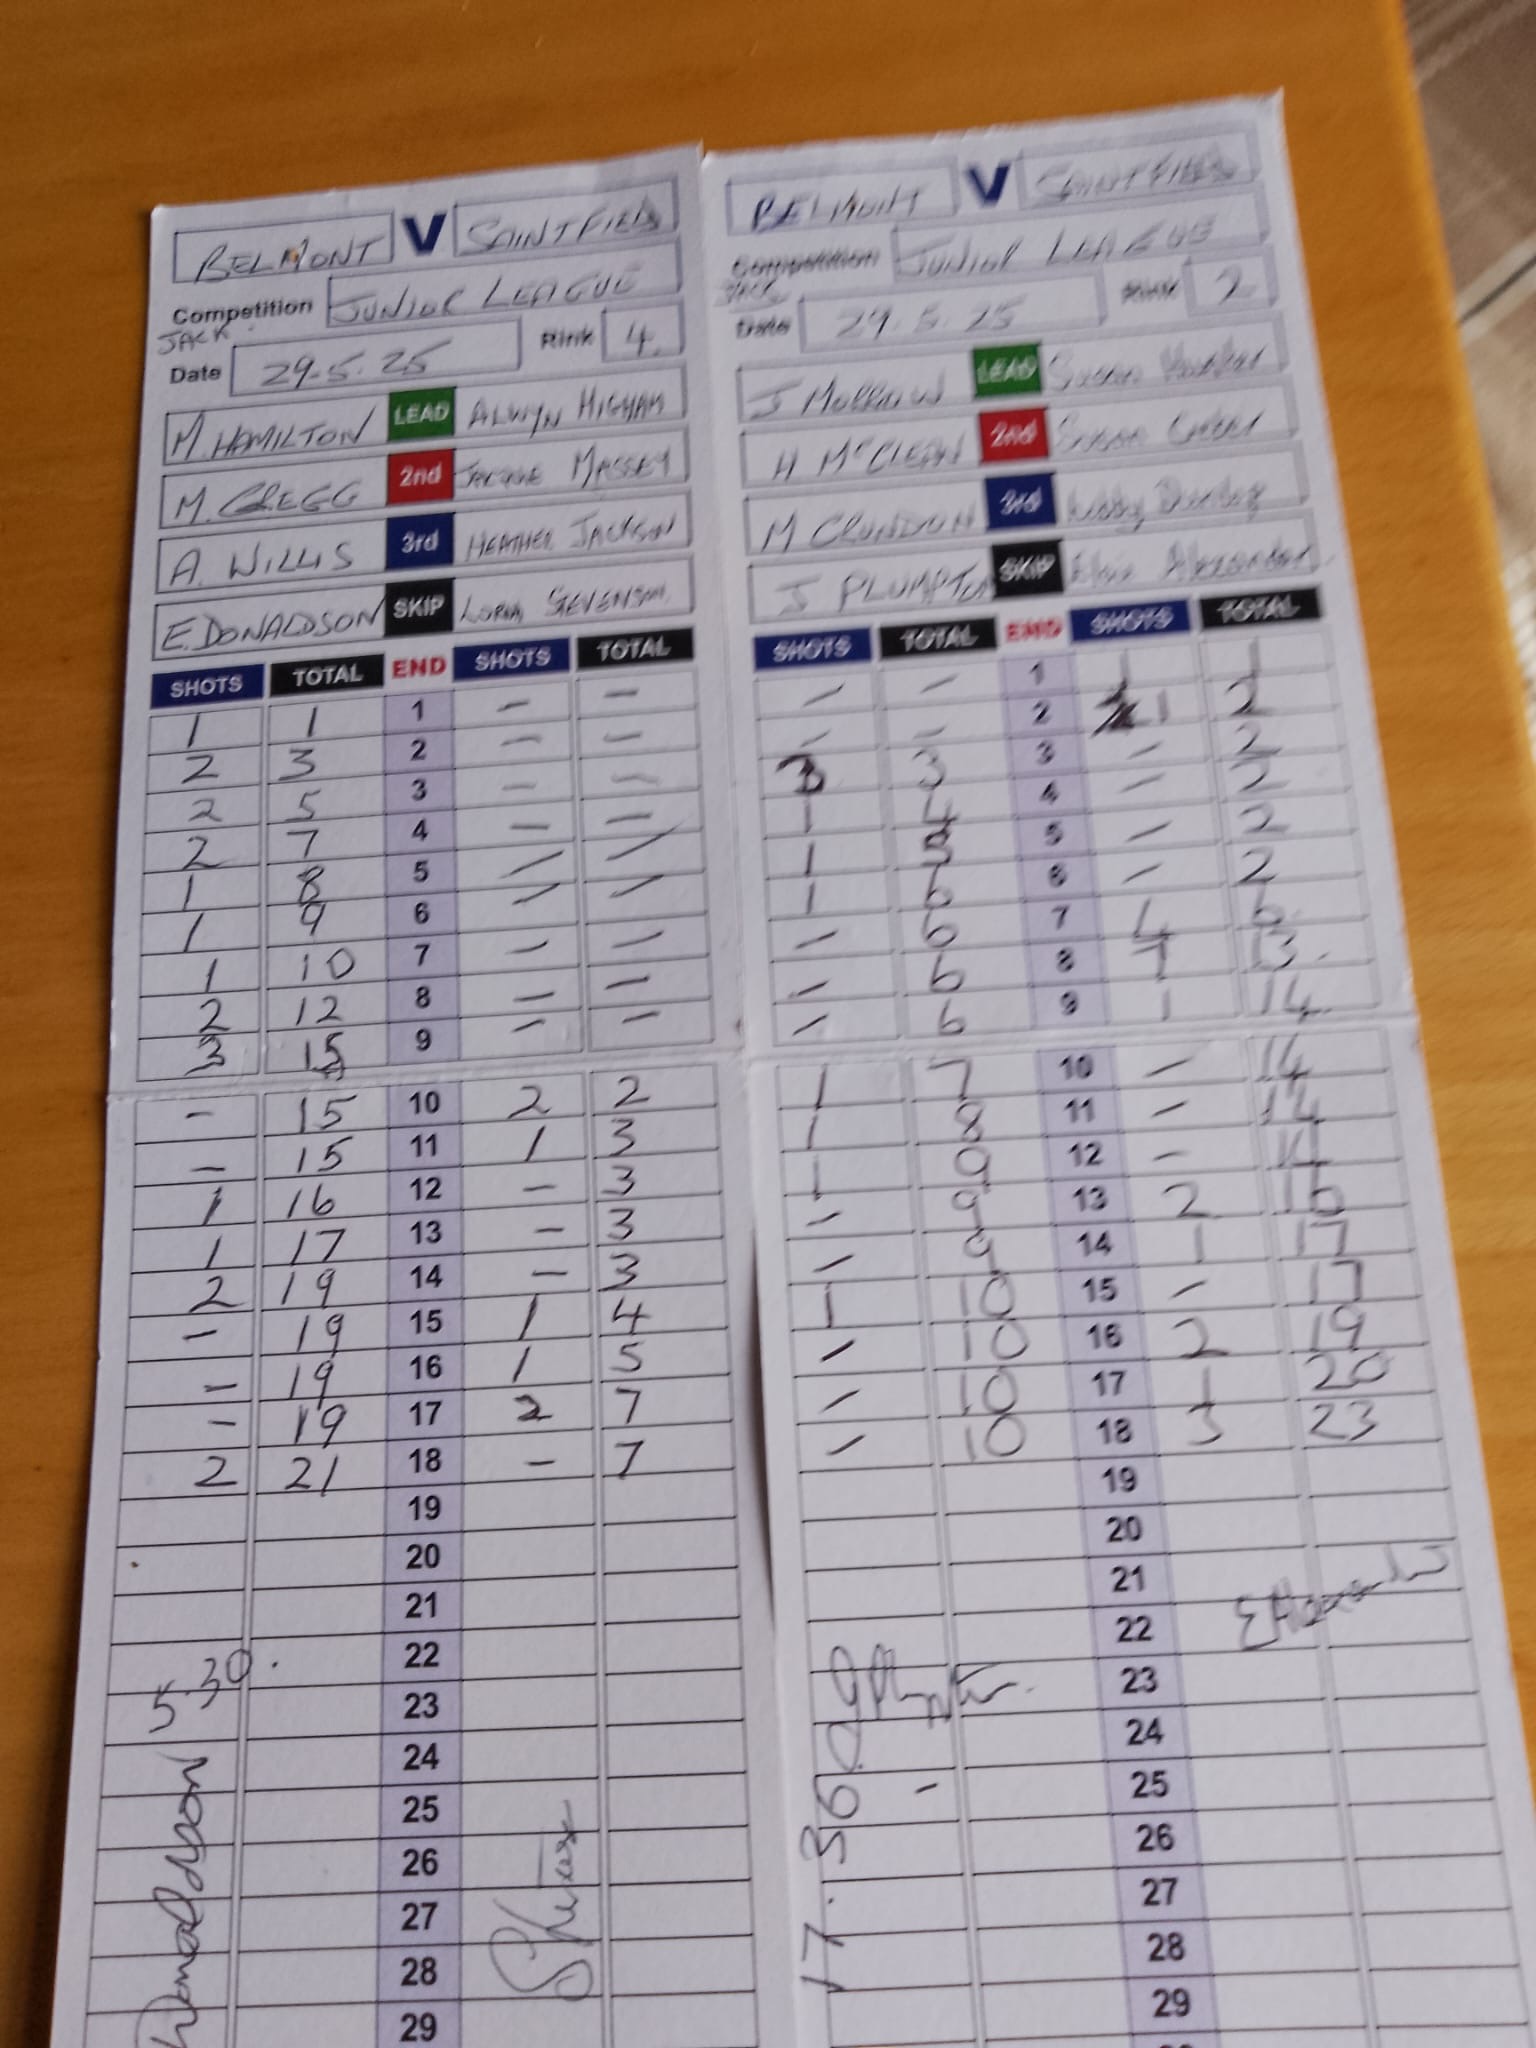 BELMONT V SAINTFIELD
Competition JUNIOR LEAGUE
JACK
Date 29.5.25 Rink 4.
M. HAMILTON LEAD ALWYN HIGHAM
M. GREGG 2nd JACQUIE MASSEY
A. WILLIS 3rd HEATHER JACKSON
E. DONALDSON SKIP LORNA STEVENSON.
SHOTS TOTAL END SHOTS TOTAL
1 1 1 - -
2 3 2 - -
2 5 3 - -
2 7 4 - -
1 8 5 - -
1 9 6 - -
1 10 7 - -
2 12 8 - -
3 15 9 - -
- 15 10 2 2
- 15 11 1 3
1 16 12 - 3
1 17 13 - 3
2 19 14 - 3
- 19 15 1 4
- 19 16 1 5
- 19 17 2 7
2 21 18 - 7
19
20
21
22
23
24
25
26
27
28
29
5.30.
Donaldson
BELMONT V SAINTFIELD
Competition JUNIOR LEAGUE
JACK
Date 29.5.25 Rink 2
J MORROW LEAD Susan
H McCLEAN 2nd Susan
M CRONDON 3rd
J PLUMPTON SKIP Alexander.
SHOTS TOTAL END SHOTS TOTAL
- - 1 1 1
- - 2 1 2
3 3 3 - 2
1 4 4 - 2
1 5 5 - 2
1 6 6 - 2
- 6 7 4 6
- 6 8 7 13.
- 6 9 1 14.
1 7 10 - 14
1 8 11 - 14
1 9 12 - 14
- 9 13 2 16
- 9 14 1 17
1 10 15 - 17
- 10 16 2 19
- 10 17 1 20
- 10 18 3 23
19
20
21
22
23
24
25
26
27
28
29
E Alexander
17.36